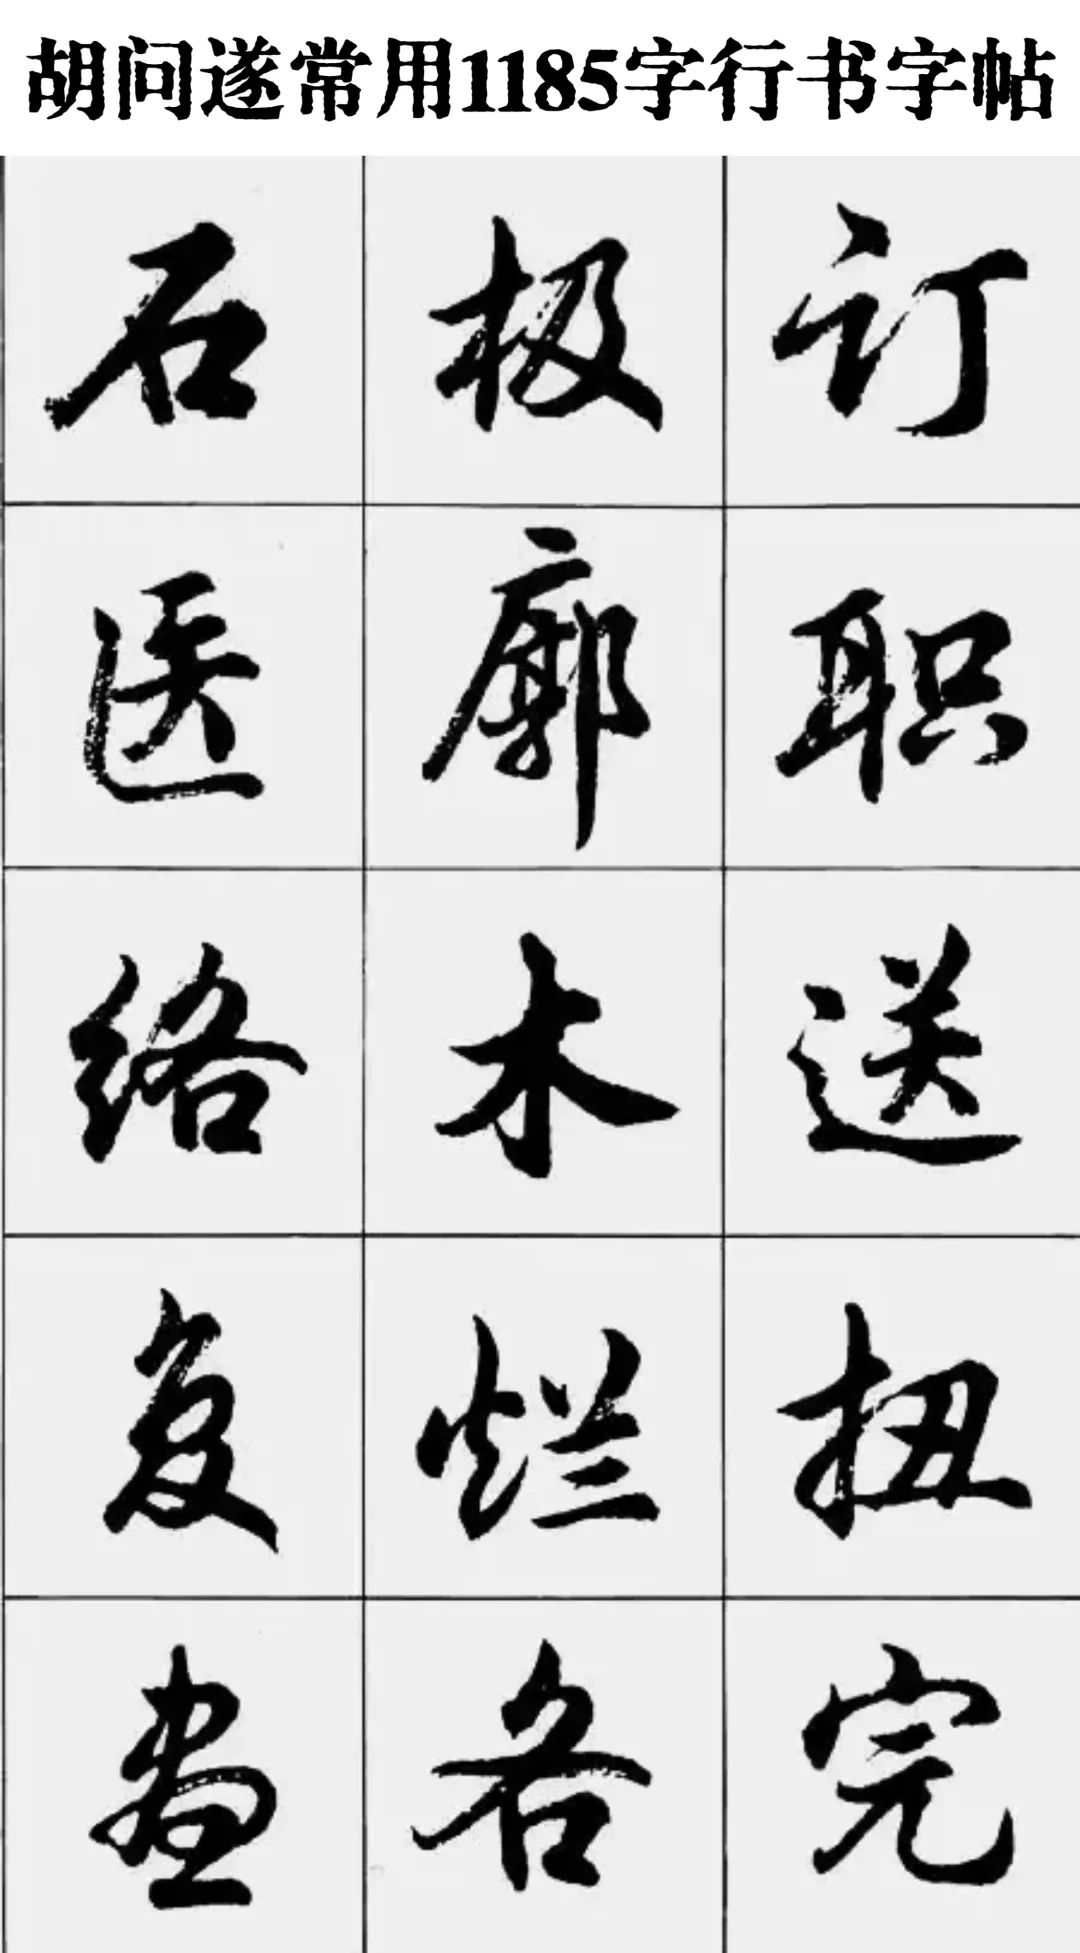 胡问遂常用1185字行书字帖
石极订
医廓职
络木送
复烂扭
画各完